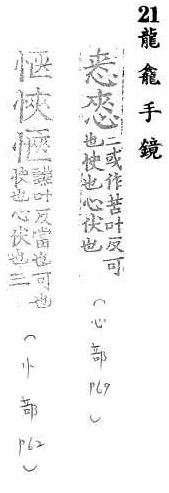 21龍龕手鏡
悘惌二或作苦叶反可
也快也心伏也
(心部 P69)
愜㤲㥦謙叶反當也可也
快也心伏也三
(忄部 P62)